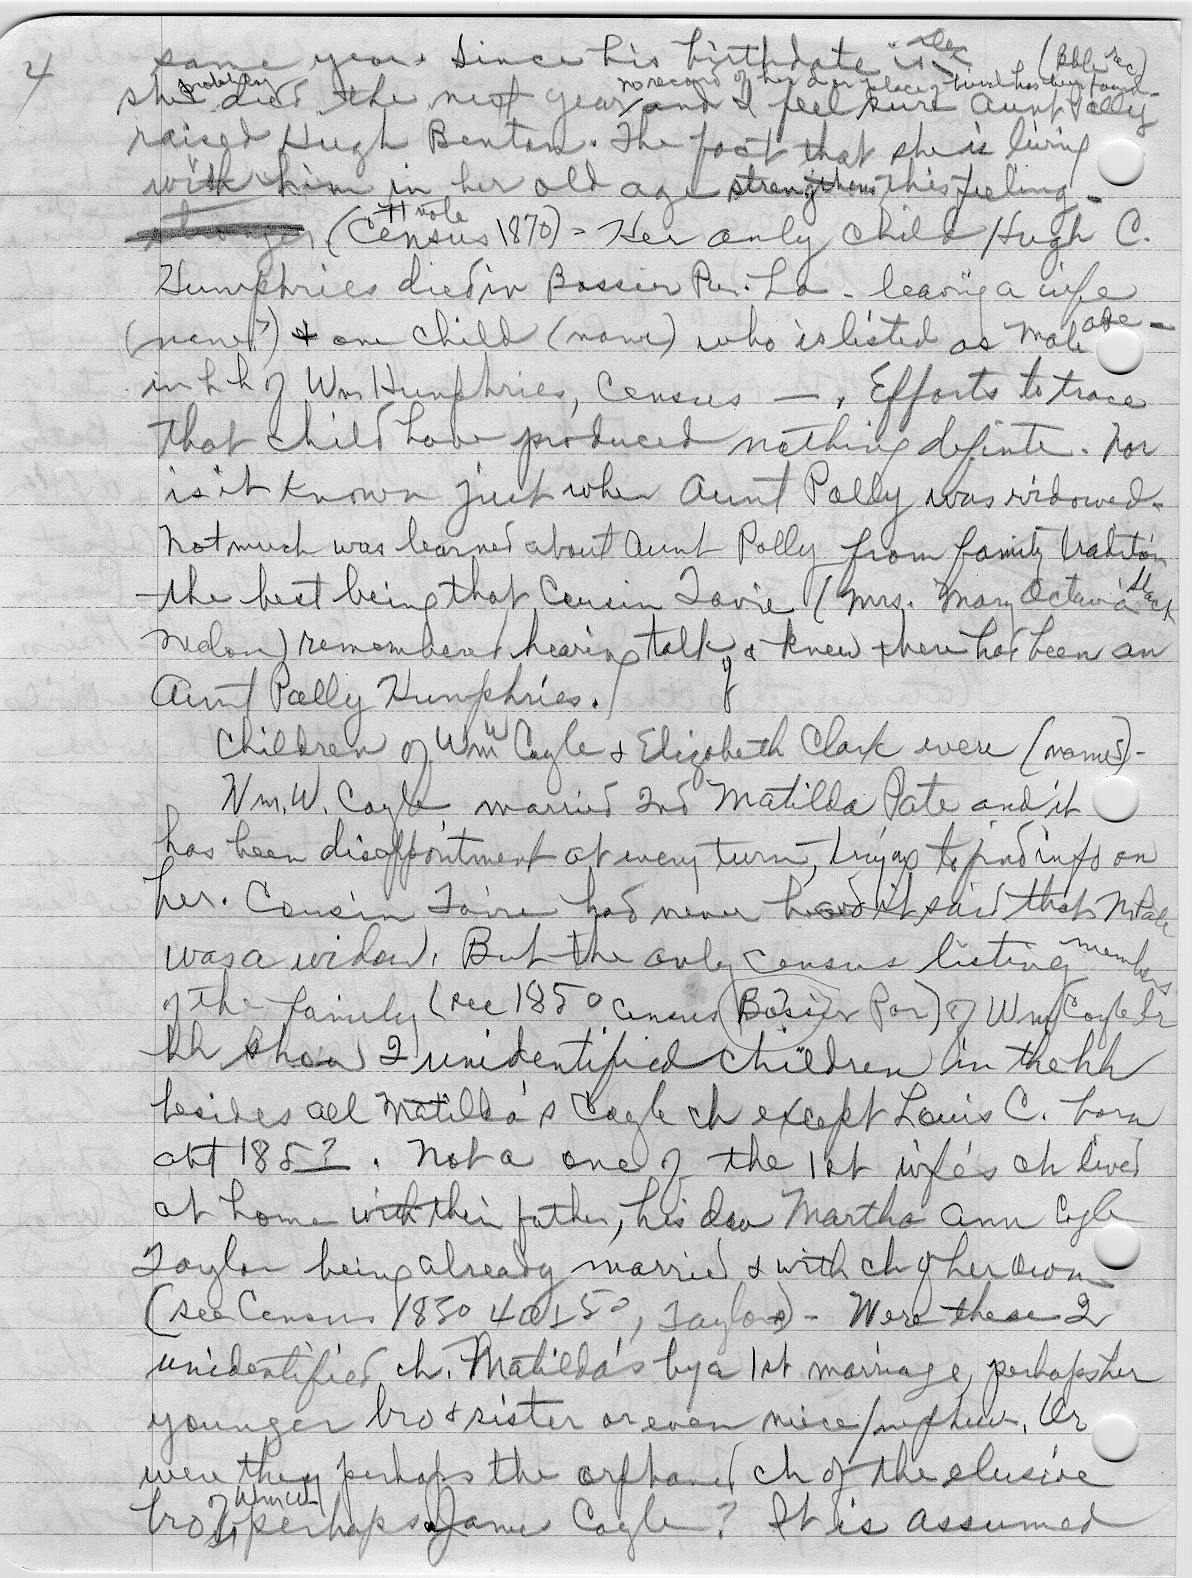 4
same year. Since his birthdate is Dec (Bble rec)
she probably died the next year no record of her d or place of burial has been found and I feel sure Aunt Polly
raised Hugh Benton. The fact that she is living
with him in her old age strengthens this feeling -
(Census 1870) - Her only child Hugh C.
Humphries died in Bossier Par. La - leaving a wife
(name?) & one child (name) who is listed as male age -
in hh of Wm Humphries, Census — . Efforts to trace
that child have produced nothing definte. Nor
is it known just when Aunt Polly was widowed -
Not much was learned about Aunt Polly from family tradition
the best being that Cousin Tavie (Mrs. Mary Octavia Slack
) remembered hearing talk of & knew there had been an
Aunt Polly Humphries.
Children of Wm W Cogle & Elizabeth Clark were (names) -
Wm. W. Cogle married 2nd Matilda Pate and it
has been disappointment at every turn, trying to find info on
her. Cousin Tavie had never heard it said that M Pate
was a widow. But the only census listing members
of the family (see 1850 census Bossier Par) of Wm Cogle Sr
hh show 2 unidentified children in the hh
besides all Matilda's Cogle ch except Louis C. born
abt 185?. Not a one of the 1st wife's ch lived
at home with their father, his dau Martha Ann Cogle
Taylor being already married & with ch of her own
(see Census 1830 40 & 50, Taylor) - Were these 2
unidentified ch. Matilda's by a 1st marriage, perhaps her
younger bro & sister or even niece/nephew. Or
were they perhaps the orphaned ch of the elusive
bro of Wm W, perhaps a James Cogle? It is assumed